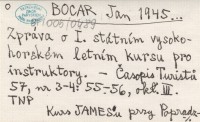 BOCAR Jan 1945...
Zpráva o I. státním vysoko-
horském letním kursu pro
instruktory. – Časopis Turistů
57, nr 3-4: 55-56, obl. III.
TNP
Kurs JAMESu przy Popradz-